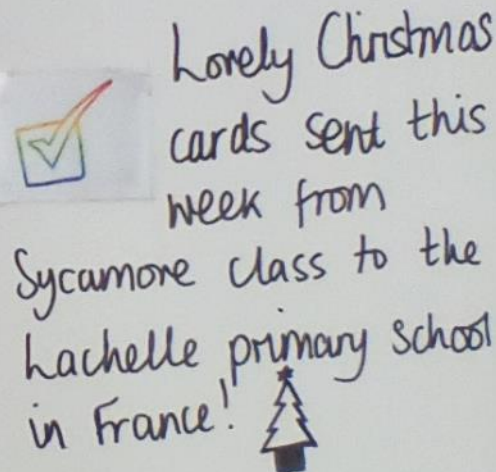 Lovely Christmas
cards sent this
week from
Sycamore class to the
Lachelle primary school
in France!